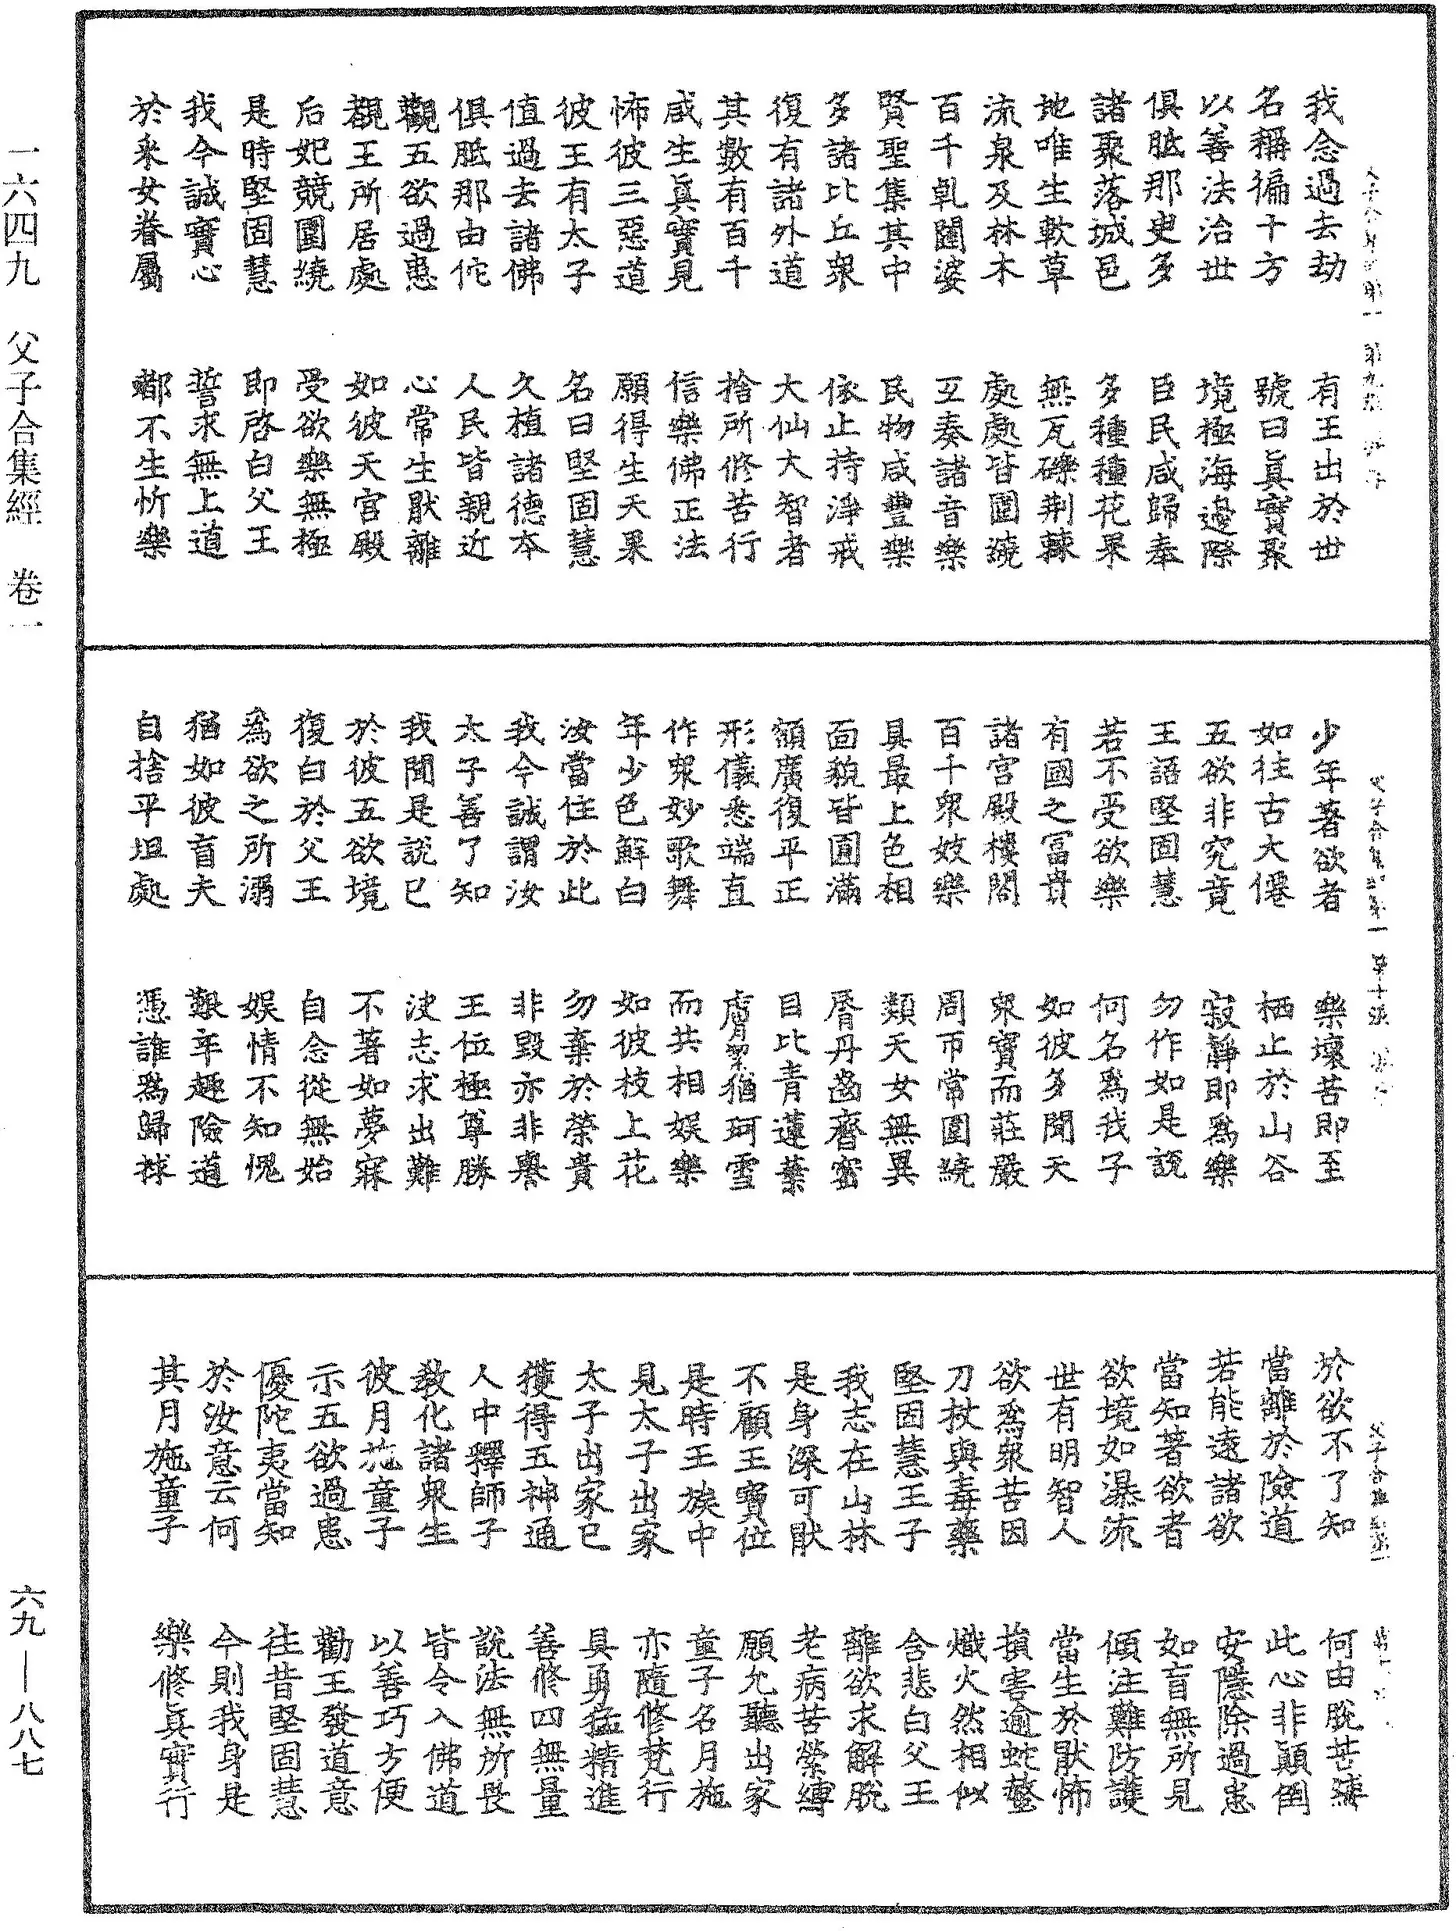 我念過去劫　有王出於世
名稱徧十方　號曰眞實聚
以善法治世　境極海邊際
俱胝那𢈔多　臣民咸歸奉
諸聚落城邑　多種種花果
地唯生軟草　無瓦礫荆棘
流泉及林木　處處皆圍繞
百千乹闥婆　互奏諸音樂
賢聖集其中　民物咸豐樂
多諸比丘衆　依止持淨戒
復有諸外道　大仙大智者
其數有百千　捨所修苦行
咸生眞實見　信樂佛正法
怖彼三惡道　願得生天果
彼王有太子　名曰堅固慧
值過去諸佛　久植諸德本
俱胝那由佗　人民皆親近
觀五欲過患　心常生猒離
覩王所居處　如彼天官殿
后妃競圍繞　受欲樂無極
是時堅固慧　即啓白父王
我今誠實心　誓求無上道
於采女眷屬　都不生忻樂
少年著欲者　樂壞苦即至
如往古大僊　栖止於山谷
五欲非究竟　寂靜即爲樂
王語堅固慧　勿作如是說
若不受欲樂　何名爲我子
有國之冨貴　如彼多聞天
諸宮殿樓閣　衆寶而莊嚴
百千衆妓樂　周帀常圍繞
具最上色相　類天女無異
面貌皆圓滿　脣丹齒齊密
額廣復平正　目比青蓮葉
形儀悉端直　膚潔猶珂雪
作衆妙歌舞　而共相娛樂
年少色鮮白　如彼枝上花
汝當住於此　勿棄於榮貴
我今誠謂汝　非毀亦非譽
太子善了知　王位極尊勝
我聞是說已　決志求出離
於彼五欲境　不著如夢寐
復白於父王　自念從無始
爲欲之所溺　娛情不知愧
猶如彼盲夫　艱辛趣險道
自捨平坦處　憑誰爲歸救
於欲不了知　何由脫苦縛
當離於險道　此心非顚倒
若能遠諸欲　安隱除過患
當知著欲者　如盲無所見
欲境如瀑流　傾注難防護
世有明智人　當生於猒怖
欲爲衆苦因　損害逾蛇螫
刀杖與毒藥　熾火然相似
堅固慧王子　含悲白父王
我志在山林　離欲求解脫
是身深可猒　老病苦縈縛
不顧王寶位　願允聽出家
是時王族中　童子名月施
見太子出家　亦隨修梵行
太子出家已　具勇猛精進
獲得五神通　善修四無量
人中釋師子　說法無所畏
教化諸衆生　皆令入佛道
彼月施童子　以善巧方便
示五欲過患　勸王發道意
優陀夷當知　往昔堅固慧
於汝意云何　今則我身是
其月施童子　樂修眞實行
一六四九　父子合集經　卷一
六九—八八七